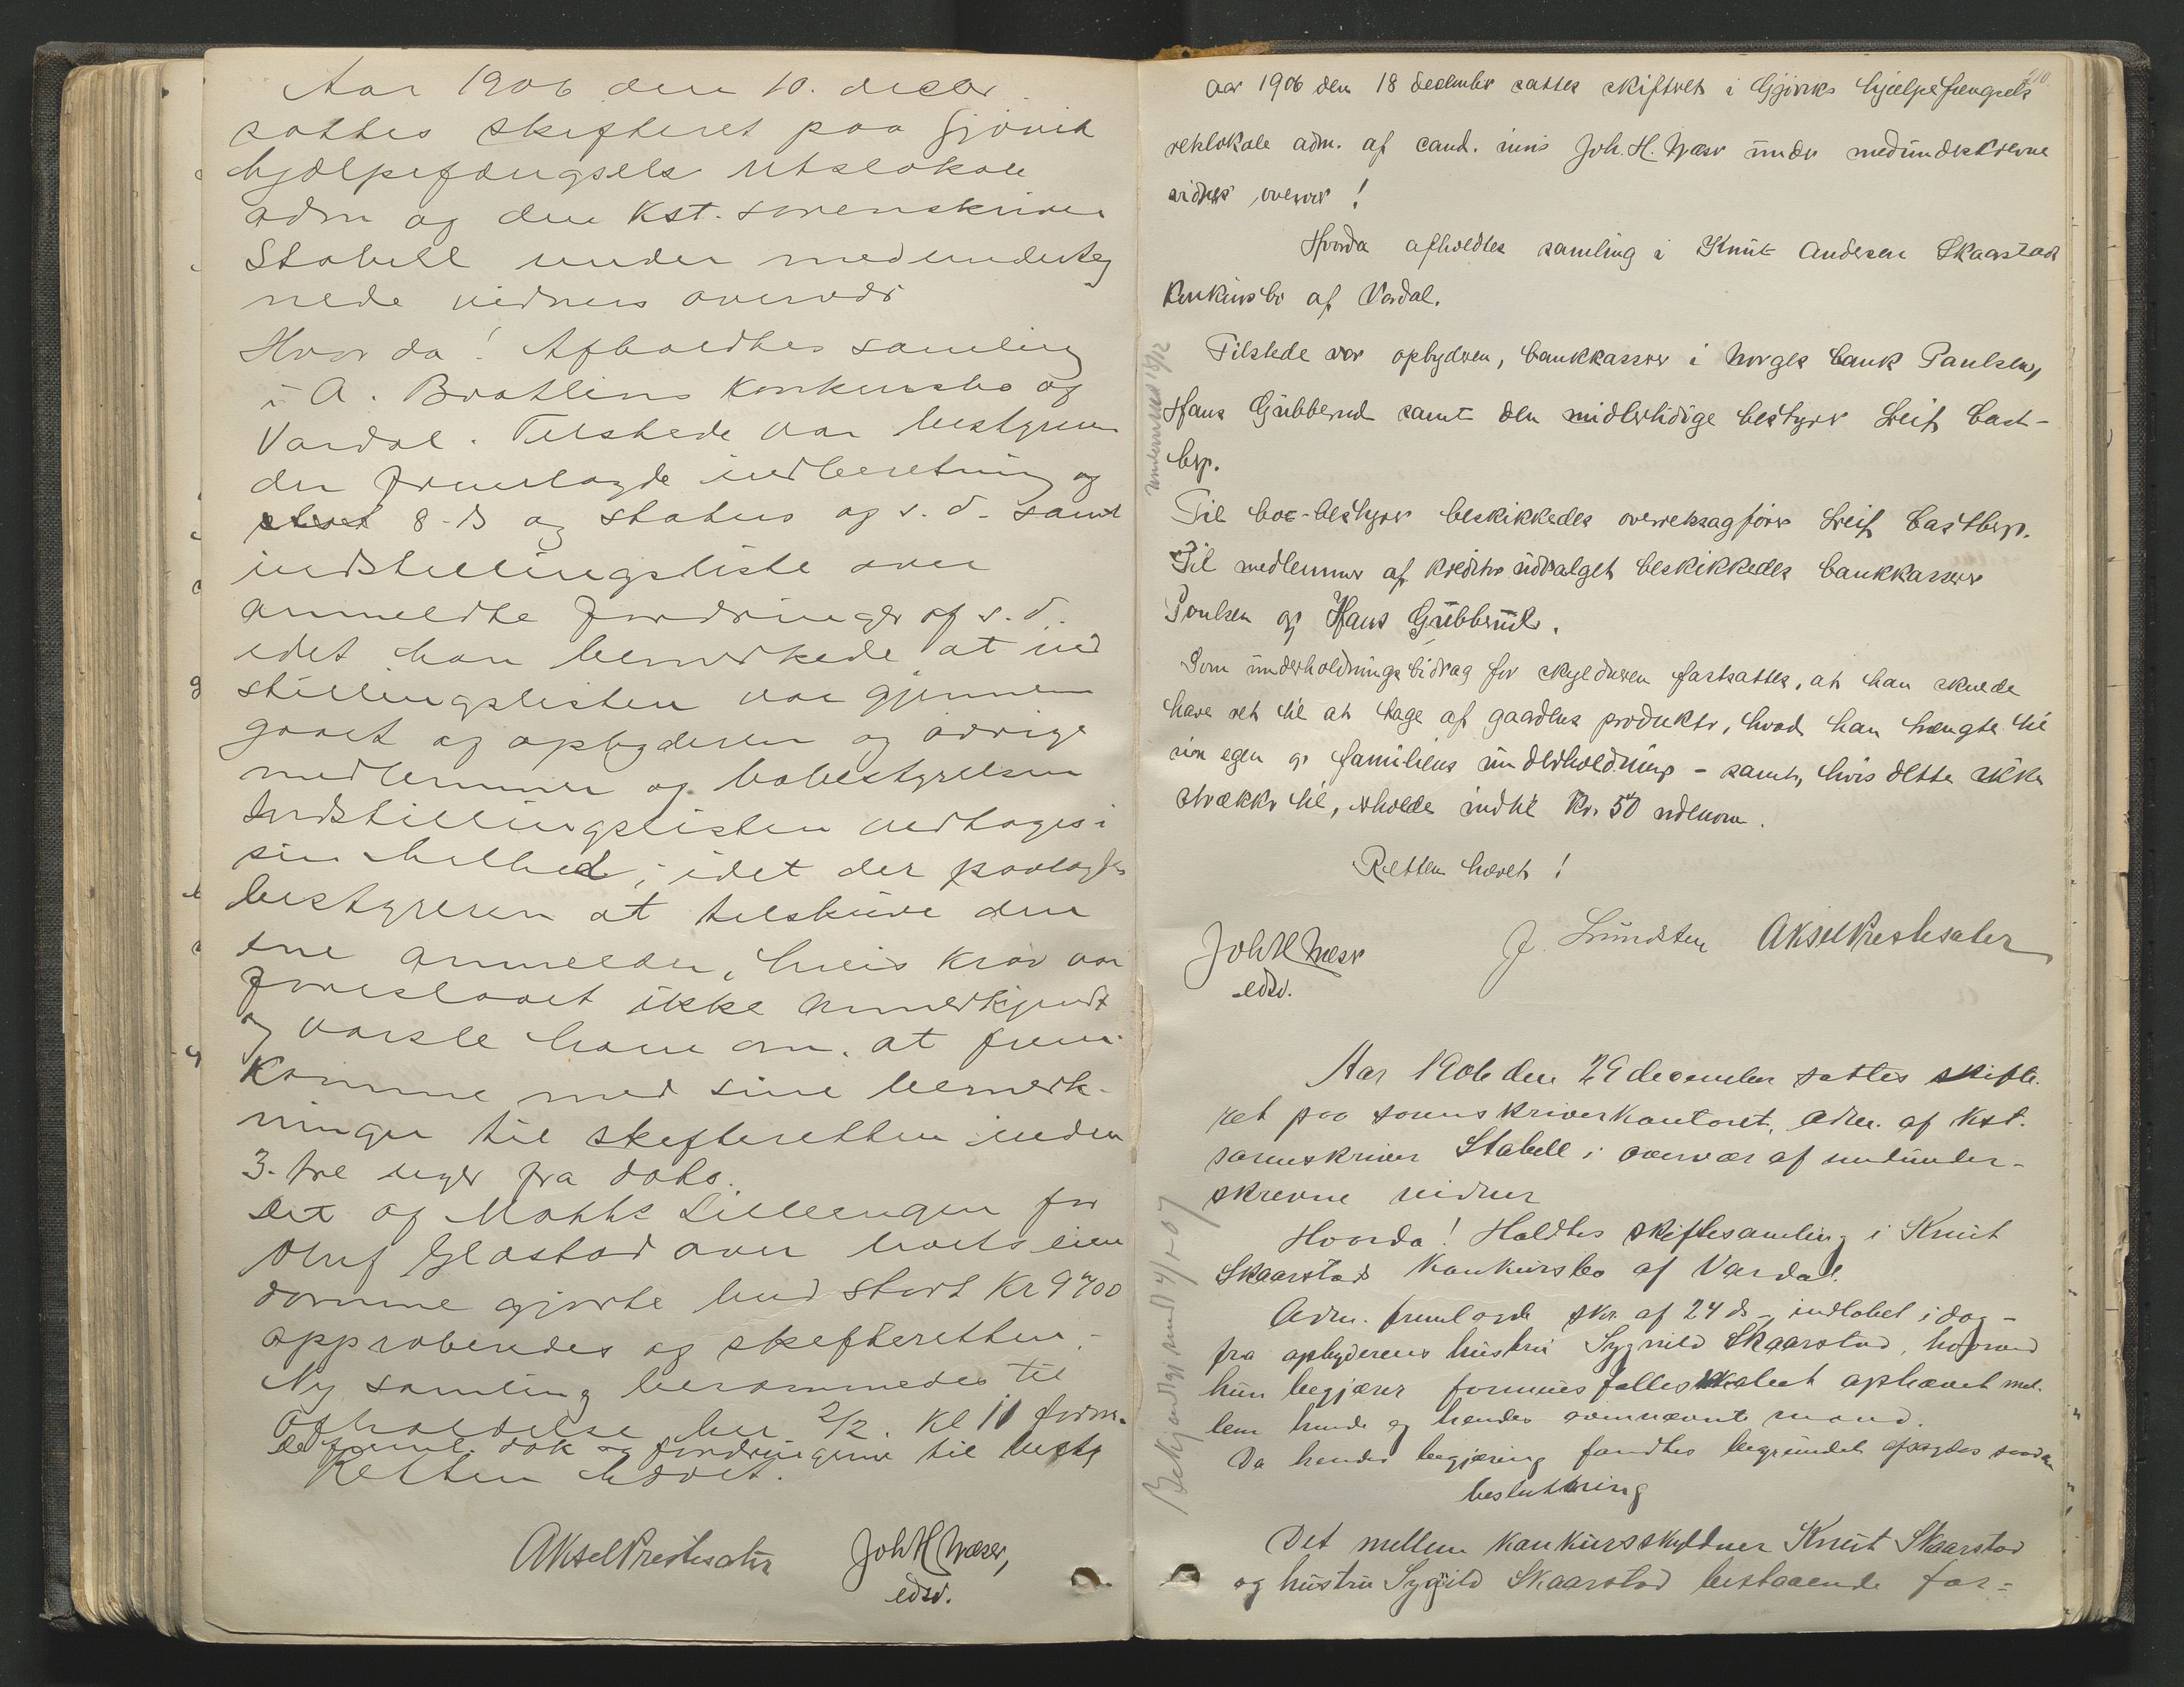 Aar 1906 den 10. decbr
sattes skifteret paa Gjøvik
hjælpefængsels retslokale
adm af den Kst. sorenskriver
Stabell under medunderteg
nede vidners overvær
Hvorda! Afholdtes samling
i A. Bratliens konkursbo af
Vardal. Tilstede var bestyreren
der fremlagde indberetning af
8-ds og status af s. d. samt
indstillingsliste over
anmeldte fordringer af s. d.
idet han bemærkede at ind
stillingslisten var gjennem
gaaet af opbyderen og øvrige
medlemmer af bobestyrelsen
Indstillingslisten vedtages i
sin helhed, idet der paalagdes
bestyreren at tilskrive den
ene anmelder, hvis krav var
foreslaaet ikke anerkjendt
og varsle ham om. at frem-
komme med sine bemærk-
ninger til skifteretten inden
3. tre uger fra dato.
Det af Mathæ Lilleengen for
Oluf Glæstad over boets eien
domme gjorte bud stort Kr 9400
approberedes af skifteretten.
Ny samling berammedes til
afholdelse her 2/2. Kl 11 form.
De freml. dok og fordringerne til besty
Retten hævet.
Aksel Prestesæter Joh H Næser,
edsv.
210.
Aar 1906 den 18 december sattes skifteret i Gjøviks hjælpefængsels
retslokale adm. af cand. juris Joh. H. Næser under medunderskrevne
vidners overvær!
Hvorda afholdtes samling i Knut Andersen Skaarstad
konkursbo af Vardal.
Tilstede var opbyderen, bankkasserer i Norges bank Paulsen,
Hans Gubberud samt den midlertidige bestyrer Leif Cast-
berg.
Til bo-bestyrer beskikkedes overretssagfører Leif Castberg.
Til medlemmer af kreditorudvalget beskikkedes bankkasserer
Poulsen og Hans Gubberud.
Som underholdningsbidrag for skyldneren fastsattes, at han skulde
have ret til at tage af gaardens produkter, hvad han trængte til
sin egen og familiens underholdning - samt, hvis dette ikke
strækker til, erholde indtil Kr. 50 udenom.
Retten hævet!
Joh H Næser J. Lundsten Aksel Prestesæter
edsv.
Aar 1906 den 29 december sattes skifte-
ret paa sorenskriverkontoret, adm. af kst.
sorenskriver Stabell i overvær af medunder-
skrevne vidner
Hvorda! Holdtes skiftesamling i Knut
Skaarstads konkursbo af Vardal.
Adm. fremlagde skr. af 24 ds - indløbet i dag -
fra opbyderens hustru Sygnild Skaarstad, hvorved
hun begjærer formuesfællesskabet ophævet mel-
lem hende og hendes ovennævnte mand.
Da hendes begjæring fandtes begrundet afsagdes saadan
beslutning
Det mellem konkursskyldner Knut Skaarstad
og hustru Sygnild Skaarstad bestaaende for-
Bekjendtgj. sendt 4/1 07